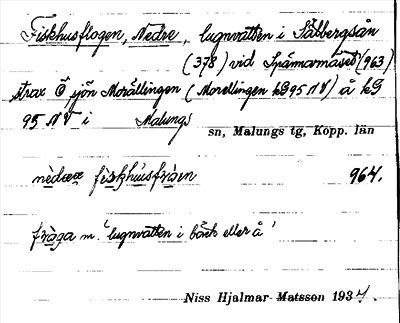 Fiskhusflogen, Nedre, lugnvatten i Sälbergsån
(378) vid Spännarmåset (963)
strax Ö sjön Morällingen (Morellingen kG95NV) å kG
95 NV i Malungs sn, Malungs tg, Kopp. län
fiskhusfrån 964.
fråga m. "lugnvatten i bäck eller å"
Niss Hjalmar Matsson 1937.